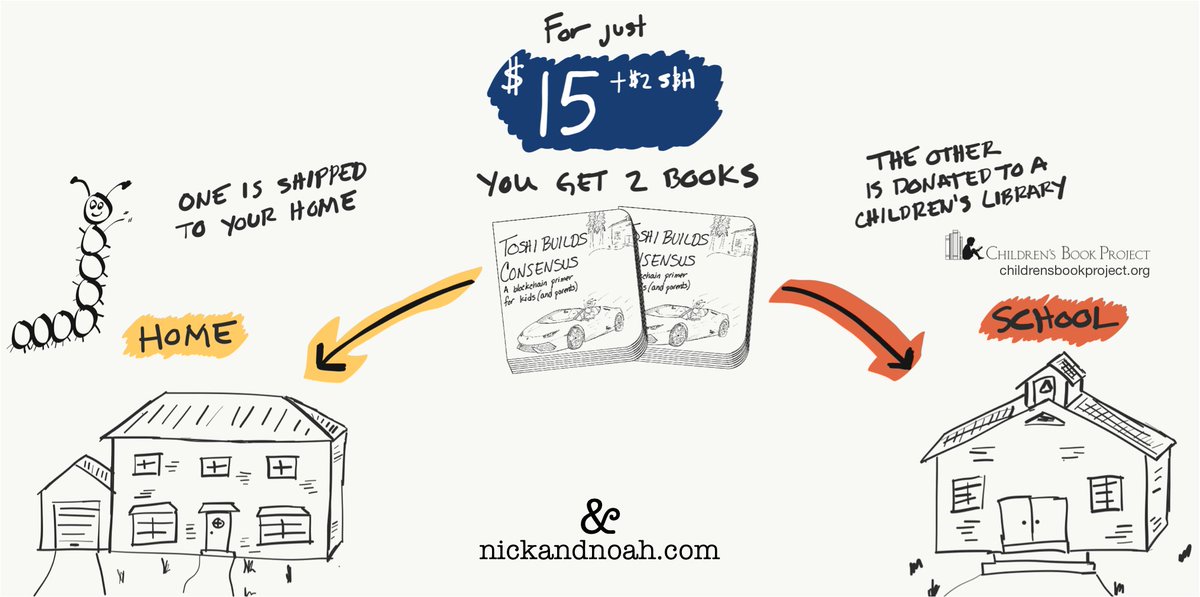 For just
$15 +$2 S&H
YOU GET 2 BOOKS
ONE IS SHIPPED
TO YOUR HOME
THE OTHER
IS DONATED TO A
CHILDREN'S LIBRARY
CHILDREN'S BOOK PROJECT
childrensbookproject.org
TOSHI BUILDS
CONSENSUS
A blockchain primer
for kids (and parents)
OSHI BUILDS
NSENSUS
ckchain primer
s (and parents)
HOME
SCHOOL
&
nickandnoah.com